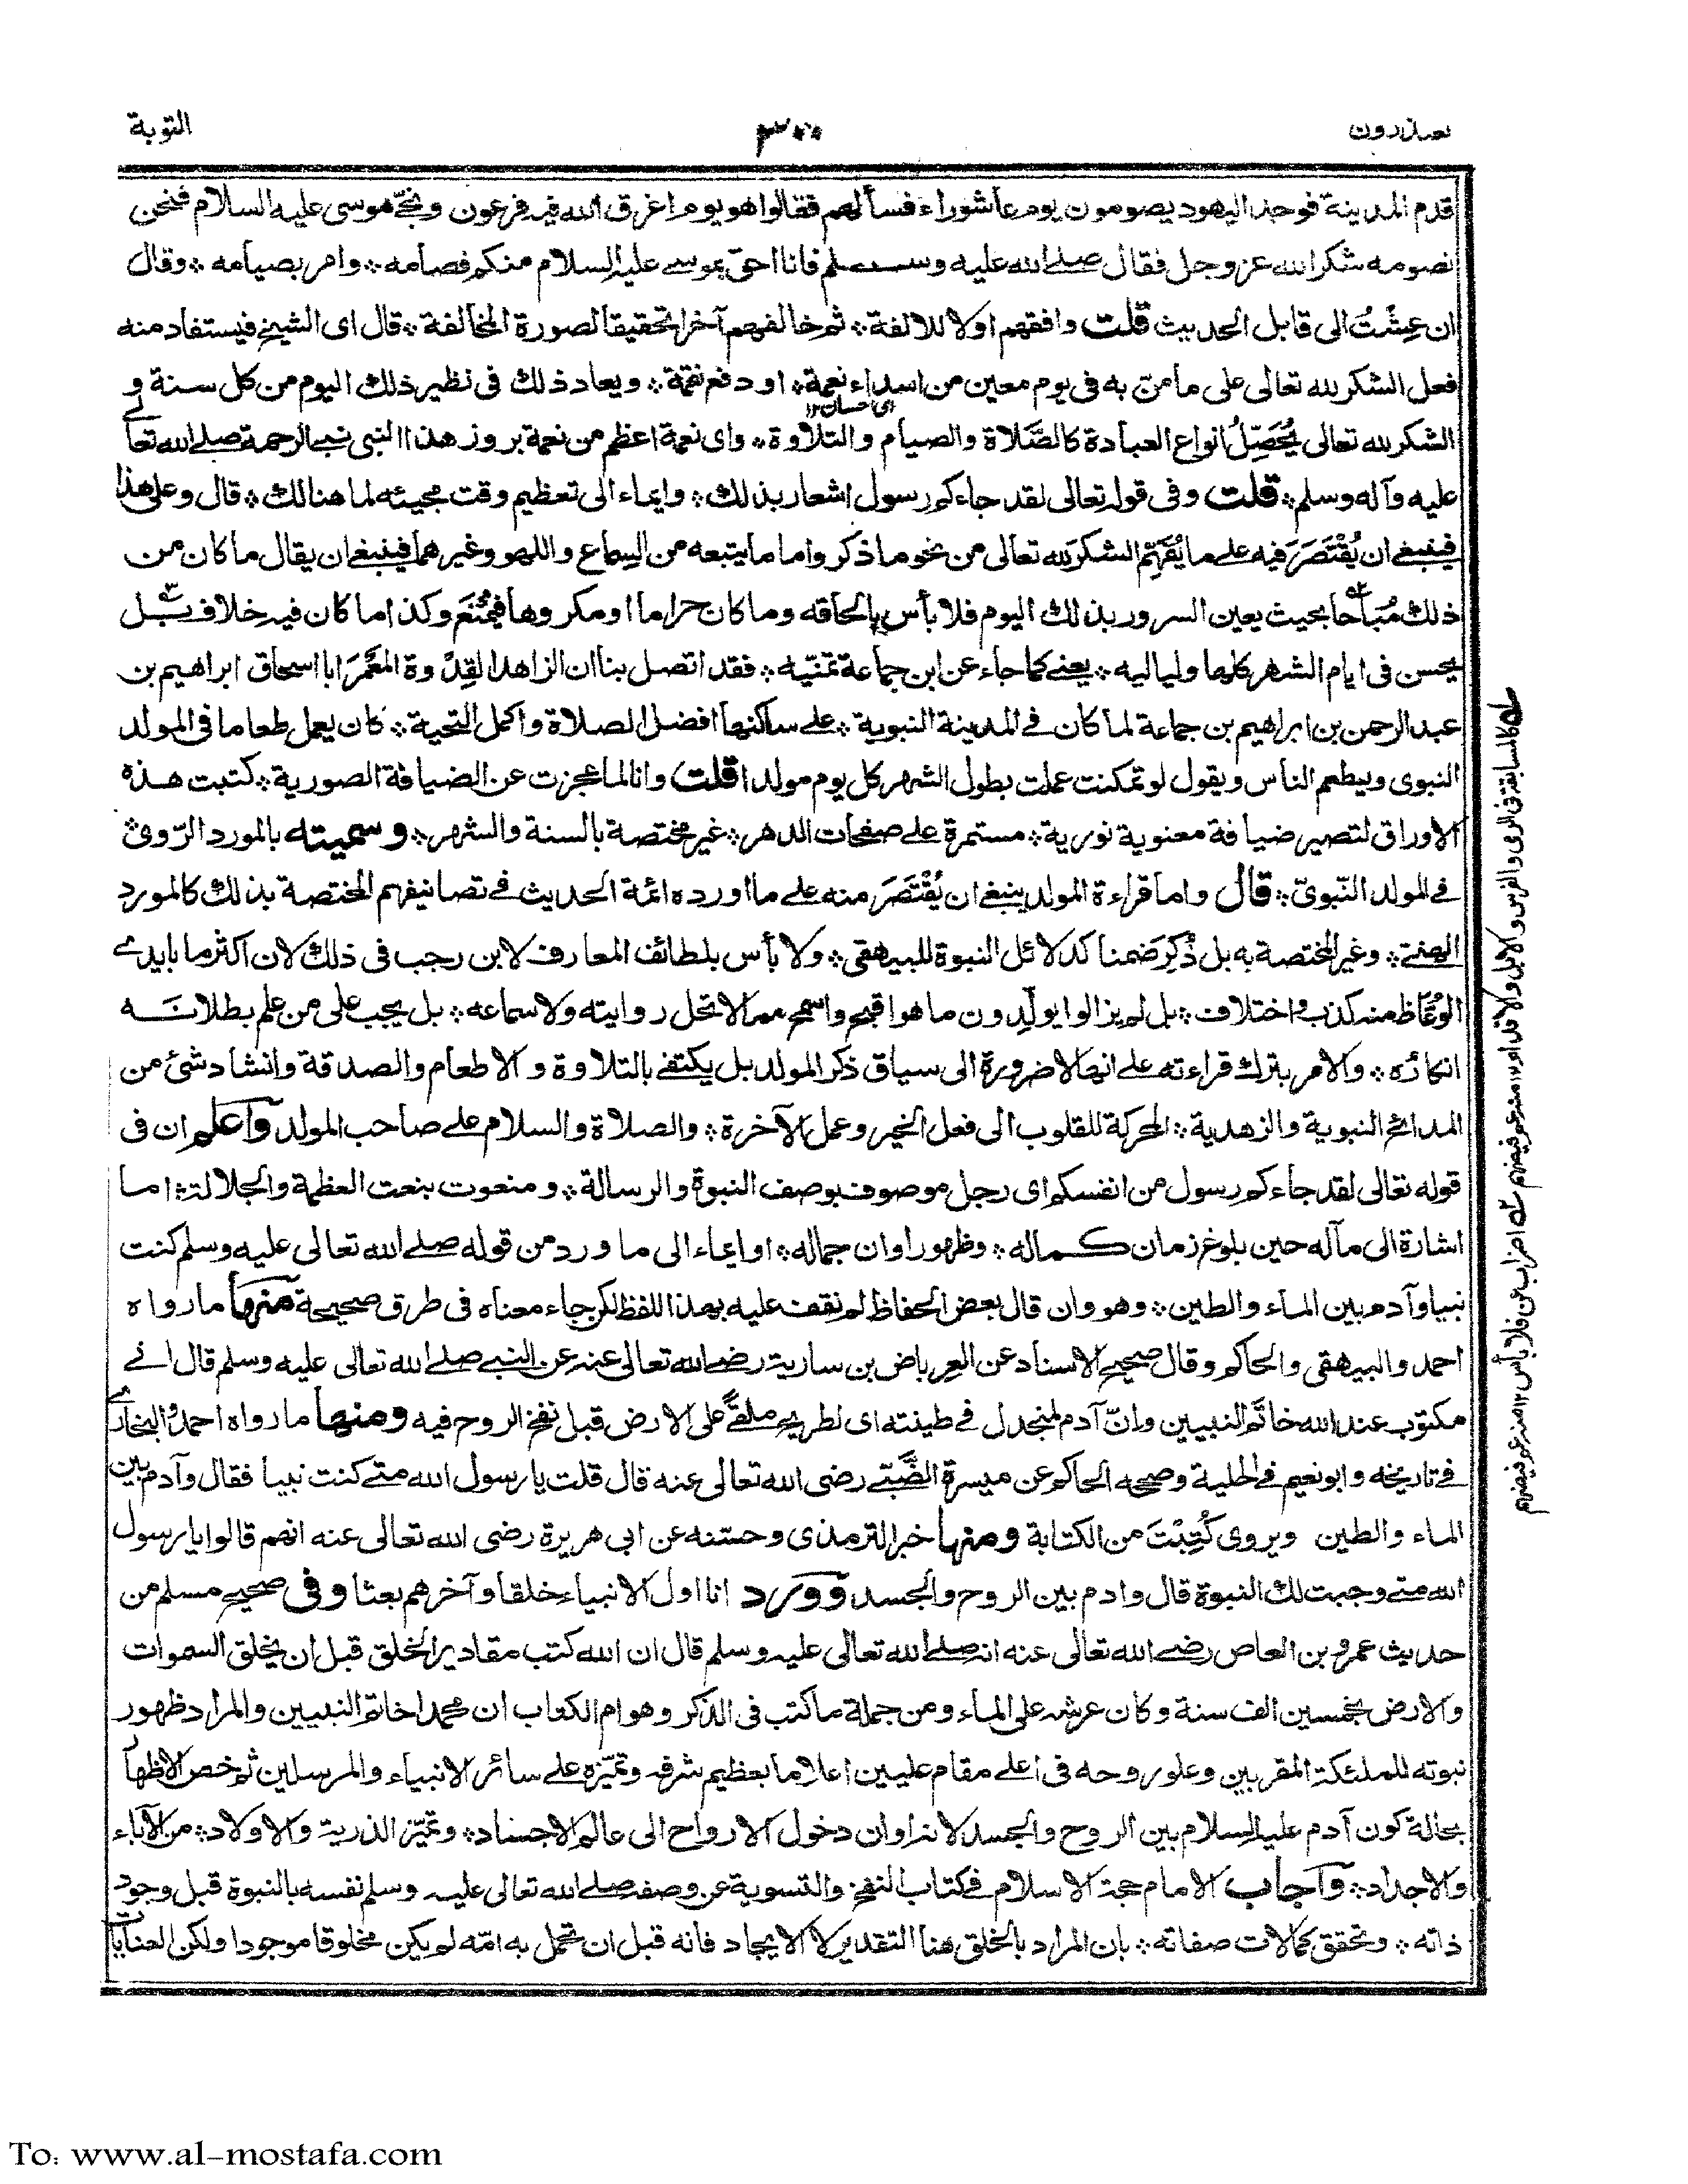 يعتذرون ٣٠٠ التوبة
قدم المدينة فوجد اليهود يصومون يوم عاشوراء فسألهم فقالوا هو يوم اغرق الله فيه فرعون ونجّى موسى عليه السلام فنحن
نصومه شكرا لله عز وجل فقال صلے الله عليه وسلم فانا احق بموسے عليه السلام منكم فصامه ۞ وامر بصيامه ۞ وقال
ان عِشْتُ الى قابل الحديث قلت وافقهم اولا للالفة ۞ ثم خالفهم آخرا تحقيقا لصورة المخالفة ۞ قال اى الشيخ فيستفاد منه
فعل الشكر لله تعالى على ما منّ به فى يوم معين من اسداء نعمة ۞ او دفع نقمة ۞ ويعاد ذلك فى نظير ذلك اليوم من كل سنة و
اى احسان ١٢
الشكر لله تعالى يُحَصِّلُ انواع العبادة كالصَّلاة والصيام والتلاوة ۞ واى نعمة اعظم من نعمة بروز هذا النبى نبے الرحمة صلے الله تعالے
عليه وآله وسلم ۞ قلت وفى قوله تعالى لقد جاءكم رسول اشعار بذلك ۞ وايماء الى تعظيم وقت مجيئه لما هنالك ۞ قال وعلى هذا
فينبغے ان يُقْتَصَرَ فيه علے ما يُفَهِّم الشكر لله تعالى من نحو ما ذكر واما ما يتبعه من السماع واللهو وغيرهما فينبغے ان يقال ما كان من
ذلك مُبَاحا بحيث يعين السرور بذلك اليوم فلا بأس بالحاقه وما كان حراما او مكروها فيُمْنَع وكذا ما كان فيه خلاف بل
يحسن فى ايام الشهر كلها ولياليه ۞ يعنے كما جاء عن ابن جماعة تمنّيه ۞ فقد اتصل بنا ان الزاهد القِدْوة المعَمَّرَ ابا اسحاق ابراهيم بن
عبد الرحمن بن ابراهيم بن جماعة لما كان فے المدينة النبوية ۞ علے ساكنها افضل الصلاة واكمل التحية ۞ كان يعمل طعاما فى المولد
النبوى ويطعم الناس ويقول لو تمكنت عملت بطول الشهر كل يوم مولدا قلت وانا لما عجزت عن الضيافة الصورية ۞ كتبت هذه
الاوراق لتصير ضيافة معنوية نورية ۞ مستمرة علے صفحات الدهر ۞ غير مختصة بالسنة والشهر ۞ وسميته بالمورد الرّوىّ
فے المولد النّبوىّ ۞ قال واما قراءة المولد ينبغے ان يُقْتَصَرَ منه علے ما اورده ائمة الحديث فے تصانيفهم المختصة بذلك كالمورد
الهنى ۞ وغير المختصة به بل ذُكِرَ ضمنا كدلائل النبوة للبيهقى ۞ ولا بأس بلطائف المعارف لابن رجب فى ذلك لان اكثر ما بايدے
الوُعَّاظ منه كذب و اختلاف ۞ بل لم يزالوا يولّدون ما هو اقبح واسمج مما لا تحل روايته ولا سماعه ۞ بل يجب على من علم بطلانه
انكاره ۞ والامر بترك قراءته علے انها لا ضرورة الى سياق ذكر المولد بل يكتفے بالتلاوة والاطعام والصدقة وانشاد شئ من
المدائح النبوية والزهدية ۞ المحركة للقلوب الى فعل الخير وعمل الآخرة ۞ والصلاة والسلام علے صاحب المولد واعلم ان فى
قوله تعالى لقد جاءكم رسول من انفسكم اى رجل موصوف بوصف النبوة والرسالة ۞ ومنعوت بنعت العظمة والجلالة ۞ اما
اشارة الى مآله حين بلوغ زمان كماله ۞ وظهور اوان جماله ۞ او ايماء الى ما ورد من قوله صلے الله تعالى عليه وسلم كنت
نبيا وآدم بين الماء والطين ۞ وهو وان قال بعض الحفاظ لم نقف عليه بهذا اللفظ لكن جاء معناه فى طرق صحيحة منها ما رواه
احمد والبيهقى والحاكم وقال صحيح الاسناد عن العرباض بن سارية رضے الله تعالى عنه عن النبے صلے الله تعالى عليه وسلم قال انے
مكتوب عند الله خاتم النبيين وانّ آدم لمنجدل فے طينته اى لطريح ملقًے على الارض قبل نفخ الروح فيه ومنها ما رواه احمد والبخارى
فے تاريخه وابو نعيم فے الحلية وصححه الحاكم عن ميسرة الضَّبّے رضى الله تعالى عنه قال قلت يا رسول الله متے كنت نبيا فقال وآدم بين
الماء والطين ويروى كُتِبْتَ من الكتابة ومنها خبر الترمذى وحسّنه عن ابى هريرة رضى الله تعالى عنه انهم قالوا يا رسول
الله متے وجبت لك النبوة قال وادم بين الروح والجسد وورد انا اول الانبياء خلقا وآخرهم بعثا وفى صحيح مسلم من
حديث عمرو بن العاص رضے الله تعالى عنه انه صلے الله تعالى عليه وسلم قال ان الله كتب مقادير الخلق قبل ان يخلق السموات
والارض بخمسين الف سنة وكان عرشه على الماء ومن جملة ما كتب فى الذكر وهو ام الكتاب ان محمدا خاتم النبيين والمراد ظهور
نبوته للملئكة المقربين وعلو روحه فى اعلے مقام عليين اعلاما بعظيم شرفه وتميّزه علے سائر الانبياء والمرسلين ثم خص الاظهار
بحالة كون آدم عليه السلام بين الروح والجسد لانه اوان دخول الارواح الى عالم الاجساد ۞ وتميّز الذرية والاولاد ۞ من الآباء
والاجداد ۞ واجاب الامام حجة الاسلام فے كتاب النفخ والتسوية عن وصفه صلے الله تعالى عليه وسلم نفسه بالنبوة قبل وجود
ذاته ۞ وتحقق كمالات صفاته ۞ بان المراد بالخلق هنا التقدير لا الايجاد فانه قبل ان تحمل به امّه لم يكن مخلوقا موجودا ولكن الغايات
له كالمسابقة فى الرمى والفرس والابل والاقدام ١٢ منه عم فيضهم ٢ه اضراب عن فلا بأس ١٢ منه عم فيضهم
To: www.al-mostafa.com